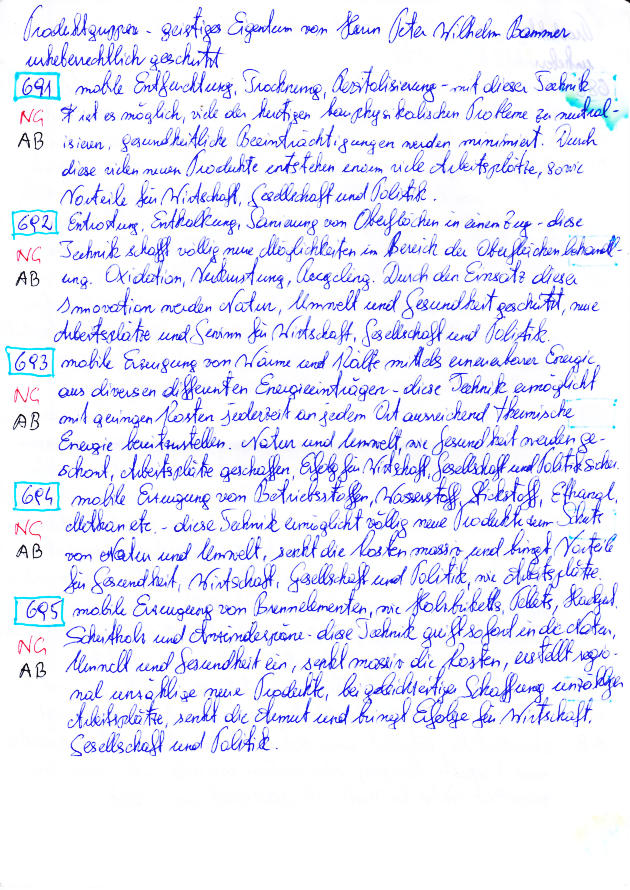 Produktgruppen - geistiges Eigentum von Herrn Peter Wilhelm Bammer
urheberrechtlich geschützt
691 mobile Entfeuchtung, Trocknung, Revitalisierung - mit dieser Technik
NG ist es möglich, viele der heutigen bauphysikalischen Probleme zu neutral-
AB isieren, gesundheitliche Beeinträchtigungen werden minimiert. Durch
diese vielen neuen Produkte entstehen enorm viele Arbeitsplätze, sowie
Vorteile für Wirtschaft, Gesellschaft und Politik.
692 Entrostung, Entkalkung, Sanierung von Oberflächen in einem Zug - diese
NG Technik schafft völlig neue Möglichkeiten im Bereich der Oberflächenbehandl-
AB ung. Oxidation, Verkrustung, Recycling. Durch den Einsatz dieser
Innovation werden Natur, Umwelt und Gesundheit geschützt, neue
Arbeitsplätze und Gewinn für Wirtschaft, Gesellschaft und Politik.
693 mobile Erzeugung von Wärme und Kälte mittels erneuerbarer Energie
NG aus diversen differenten Energieeinträgen - diese Technik ermöglicht
AB mit geringen Kosten jederzeit an jedem Ort ausreichend thermische
Energie bereitzustellen. Natur und Umwelt, wie Gesundheit werden ge-
schont, Arbeitsplätze geschaffen, Erfolg für Wirtschaft, Gesellschaft und Politik sicher.
694 mobile Erzeugung von Betriebsstoffen, Wasserstoff, Stickstoff, Ethanol,
NG Methan etc. - diese Technik ermöglicht völlig neue Produkte zum Schutz
AB von Natur und Umwelt, senkt die Kosten massiv und bringt Vorteile
für Gesundheit, Wirtschaft, Gesellschaft und Politik, wie Arbeitsplätze.
695 mobile Erzeugung von Brennelementen, wie Holzbriketts, Pellets, Hackgut,
NG Scheitholz und Anzündespäne - diese Technik greift sofort in die Natur,
AB Umwelt und Gesundheit ein, senkt massiv die Kosten, erstellt regio-
nal unzählige neue Produkte, bei gleichzeitiger Schaffung unzähliger
Arbeitsplätze, senkt die Armut und bringt Erfolge für Wirtschaft,
Gesellschaft und Politik.